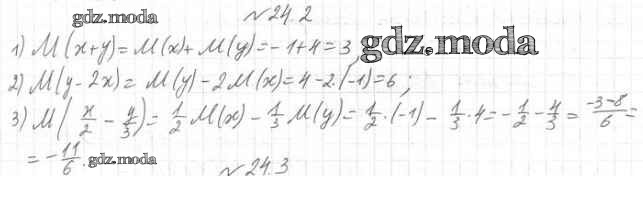 gdz.moda №24.2
1) M(x+y) = M(x) + M(y) = -1+4 = 3, gdz.moda
2) M(y-2x) = M(y) - 2M(x) = 4-2·(-1) = 6;
3) M(x/2 - y/3) = 1/2 M(x) - 1/3 M(y) = 1/2·(-1) - 1/3·4 = -1/2 - 4/3 = -3-8/6 =
= -11/6. gdz.moda
№24.3